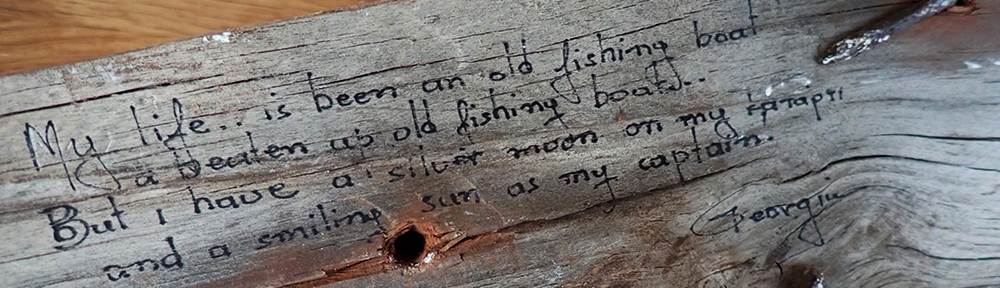 My life.. is been an old fishing boat
a beaten up old fishing boat..
But i have a silver moon on my karapri
and a smiling sun as my captain.
Georgiu